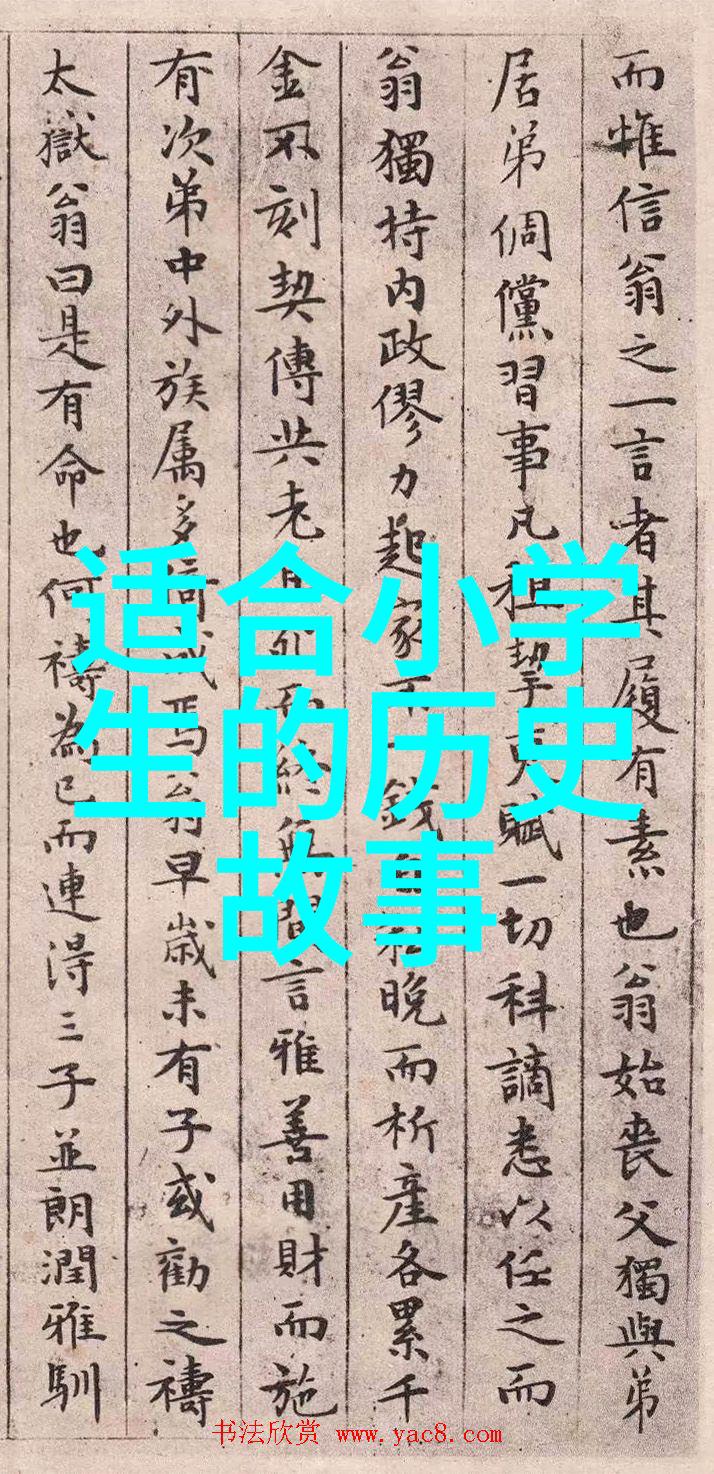 而惟信翁之一言者其履有素也翁始喪父獨與弟
居弟倜儻習事凡租挈更賦一切科謫悉以任之而
翁獨持内政僇力起家不一錢自私晚而析產各累千
金不刻契傳共老且死而終無間言雅善用財而施
有次弟中外族属多倚成焉翁早歳未有子或勸之禱
太嶽翁曰是有命也何禱為已而連得三子並朗潤雅馴
适合小学
生的历史
故事
书法欣赏 www.yac8.com